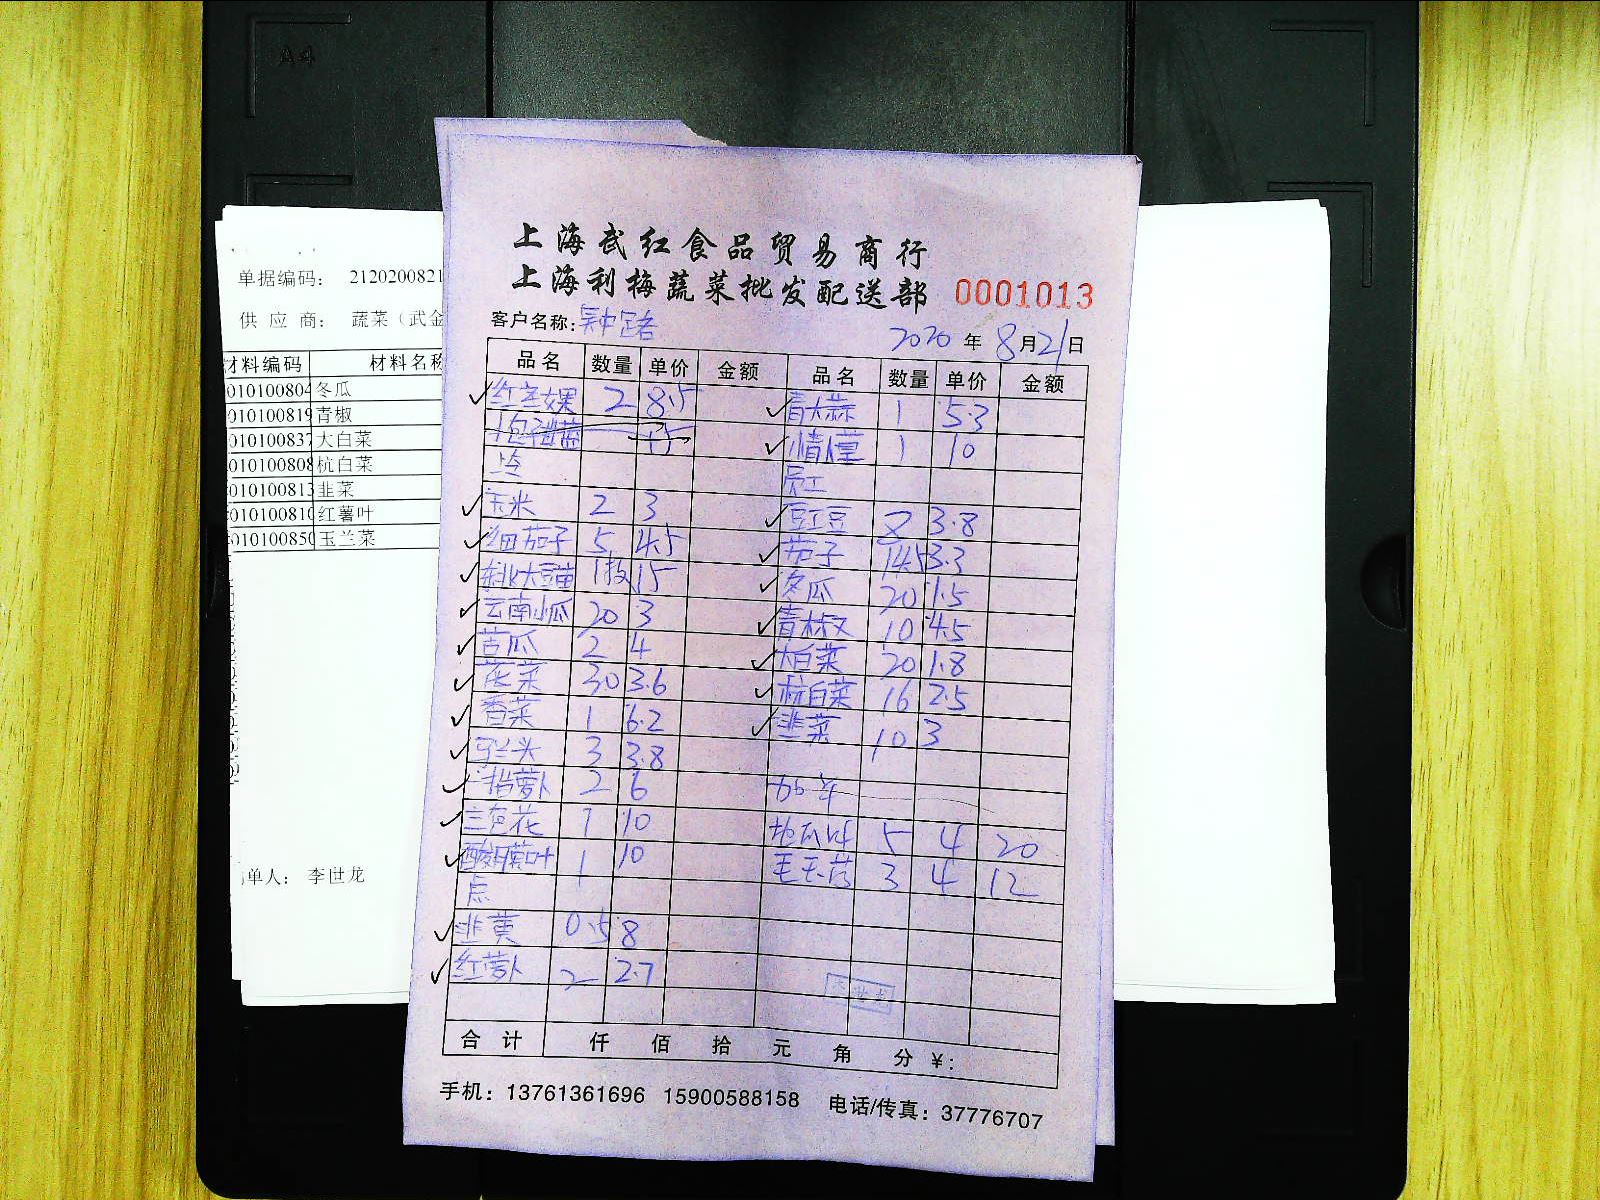 A4
单据编码： 2120200821
供 应 商： 蔬菜（武金
材料编码 材料名称
010100804 冬瓜
010100819 青椒
010100837 大白菜
010100808 杭白菜
010100813 韭菜
010100810 红薯叶
010100850 玉兰菜
单人： 李世龙
上海武红食品贸易商行
上海利梅蔬菜批发配送部 0001013
客户名称: 吴中路 2020 年 8 月 21 日
品名 数量 单价 金额 品名 数量 单价 金额
2 8.5 青大蒜 1 5.3
15 1 10
员工
玉米 2 3 豇豆 8 3.8
细茄子 5 4.5 茄子 14.5 3.3
15 冬瓜 20 1.5
云南小瓜 20 3 青椒 10 4.5
苦瓜 2 4 大白菜 20 1.8
30 3.6 杭白菜 16 2.5
香菜 1 6.2 韭菜 10 3
马兰头 3 3.8
手指萝卜 2 6 加单
三色花 1 10 地瓜叶 5 4 20
1 10 3 4 12
点
韭黄 0.5 8
红萝卜 2 2.7
合 计 仟 佰 拾 元 角 分 ¥:
手机：13761361696 15900588158 电话/传真：37776707